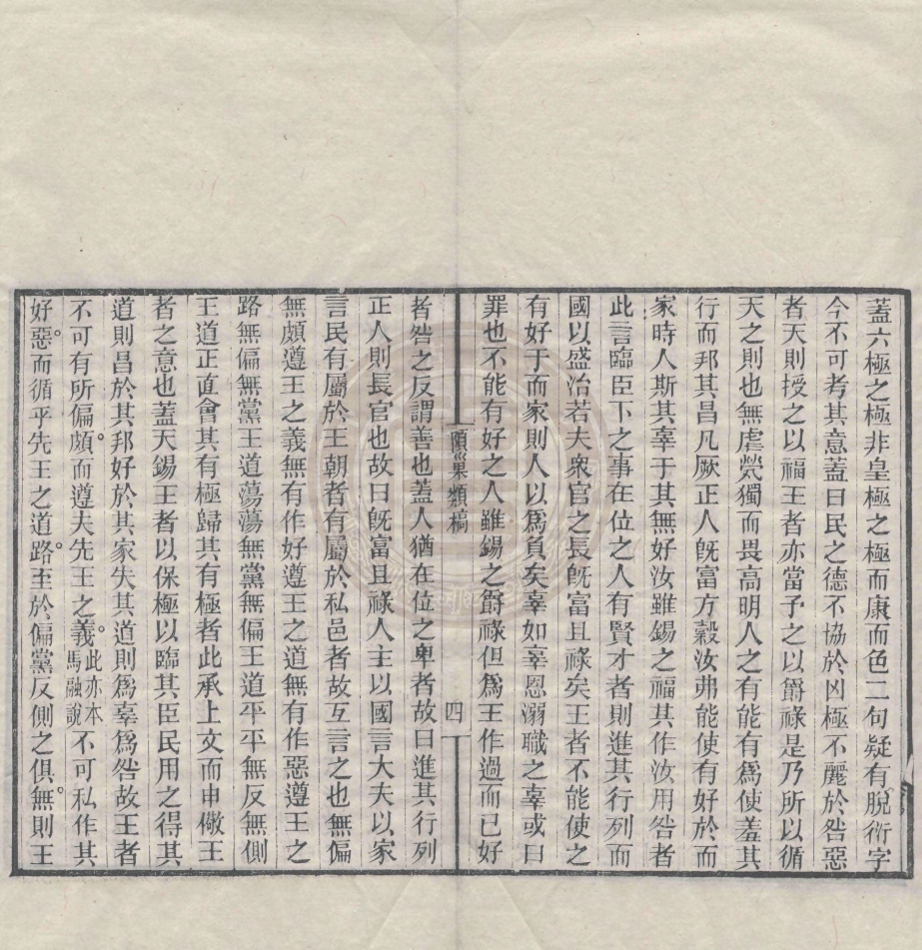 蓋六極之極非皇極之極而康而色二句疑有脫衍字
今不可考其意蓋曰民之德不協於凶極不麗於咎惡
者天則授之以福王者亦當予之以爵祿是乃所以循
天之則也無虐焭獨而畏高明人之有能有爲使羞其
行而邦其昌凡厥正人旣富方穀汝弗能使有好於而
家時人斯其辜于其無好汝雖錫之福其作汝用咎者
此言臨臣下之事在位之人有賢才者則進其行列而
國以盛治若夫衆官之長旣富且祿矣王者不能使之
有好于而家則人以爲負矣辜如辜恩溺職之辜或曰
罪也不能有好之人雖錫之爵祿但爲王作過而已好
頤巢類稿
四
者咎之反謂善也蓋人猶在位之卑者故曰進其行列
正人則長官也故曰旣富且祿人主以國言大夫以家
言民有屬於王朝者有屬於私邑者故互言之也無偏
無頗遵王之義無有作好遵王之道無有作惡遵王之
路無偏無黨王道蕩蕩無黨無偏王道平平無反無側
王道正直會其有極歸其有極者此承上文而申儆王
者之意也蓋天錫王者以保極以臨其臣民用之得其
道則昌於其邦好於其家失其道則爲辜爲咎故王者
不可有所偏頗。而遵夫先王之義。此亦本馬融說不可私作其
好惡。而循乎先王之道路。至於偏黨反側之俱無。則王